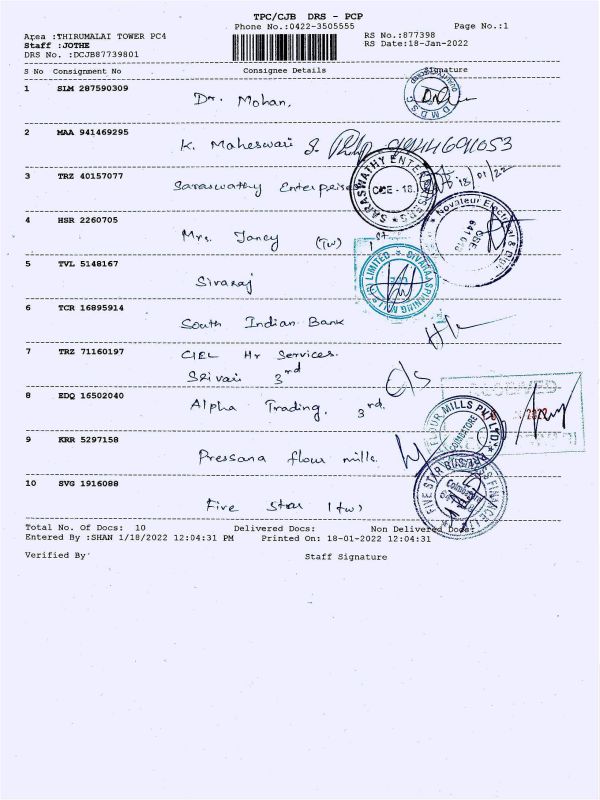 TPC/CJB DRS - PCP
Phone No.:0422-3505555
Page No.:1
Area :THIRUMALAI TOWER PC4
RS No.:877398
Staff :JOTHE
RS Date:18-Jan-2022
DRS No. :DCJB87739801
S No Consignment No Consignee Details Signature
1 SLM 287590309 Dr. Mohan,
DMDSC
2 MAA 941469295 K. Maheswari
3 TRZ 40157077 Saraswathy Enterprise
SARASWATHY ENTERPRISERS
CBE - 18.
18/01/22
4 HSR 2260705 Mrs. Jancy (TW)
Novateur Electrical &
5 TVL 5148167 Sivaraj
SIVARAJ SPINNING MILLS (P) LIMITED
6 TCR 16895914 South Indian Bank
7 TRZ 71160197 CIEL Hr Services.
Srivari 3rd
8 EDQ 16502040 Alpha Trading, 3rd.
RECEIVED
2022
9 KRR 5297158 Prassana flour mills.
FLOUR MILLS PVT LTD
COIMBATORE
10 SVG 1916088 Five Star (tw)
FIVE STAR BUSINESS FINANCE
Total No. Of Docs: 10 Delivered Docs: Non Delivered Docs:
Entered By :SHAN 1/18/2022 12:04:31 PM Printed On: 18-01-2022 12:04:31
Verified By Staff Signature